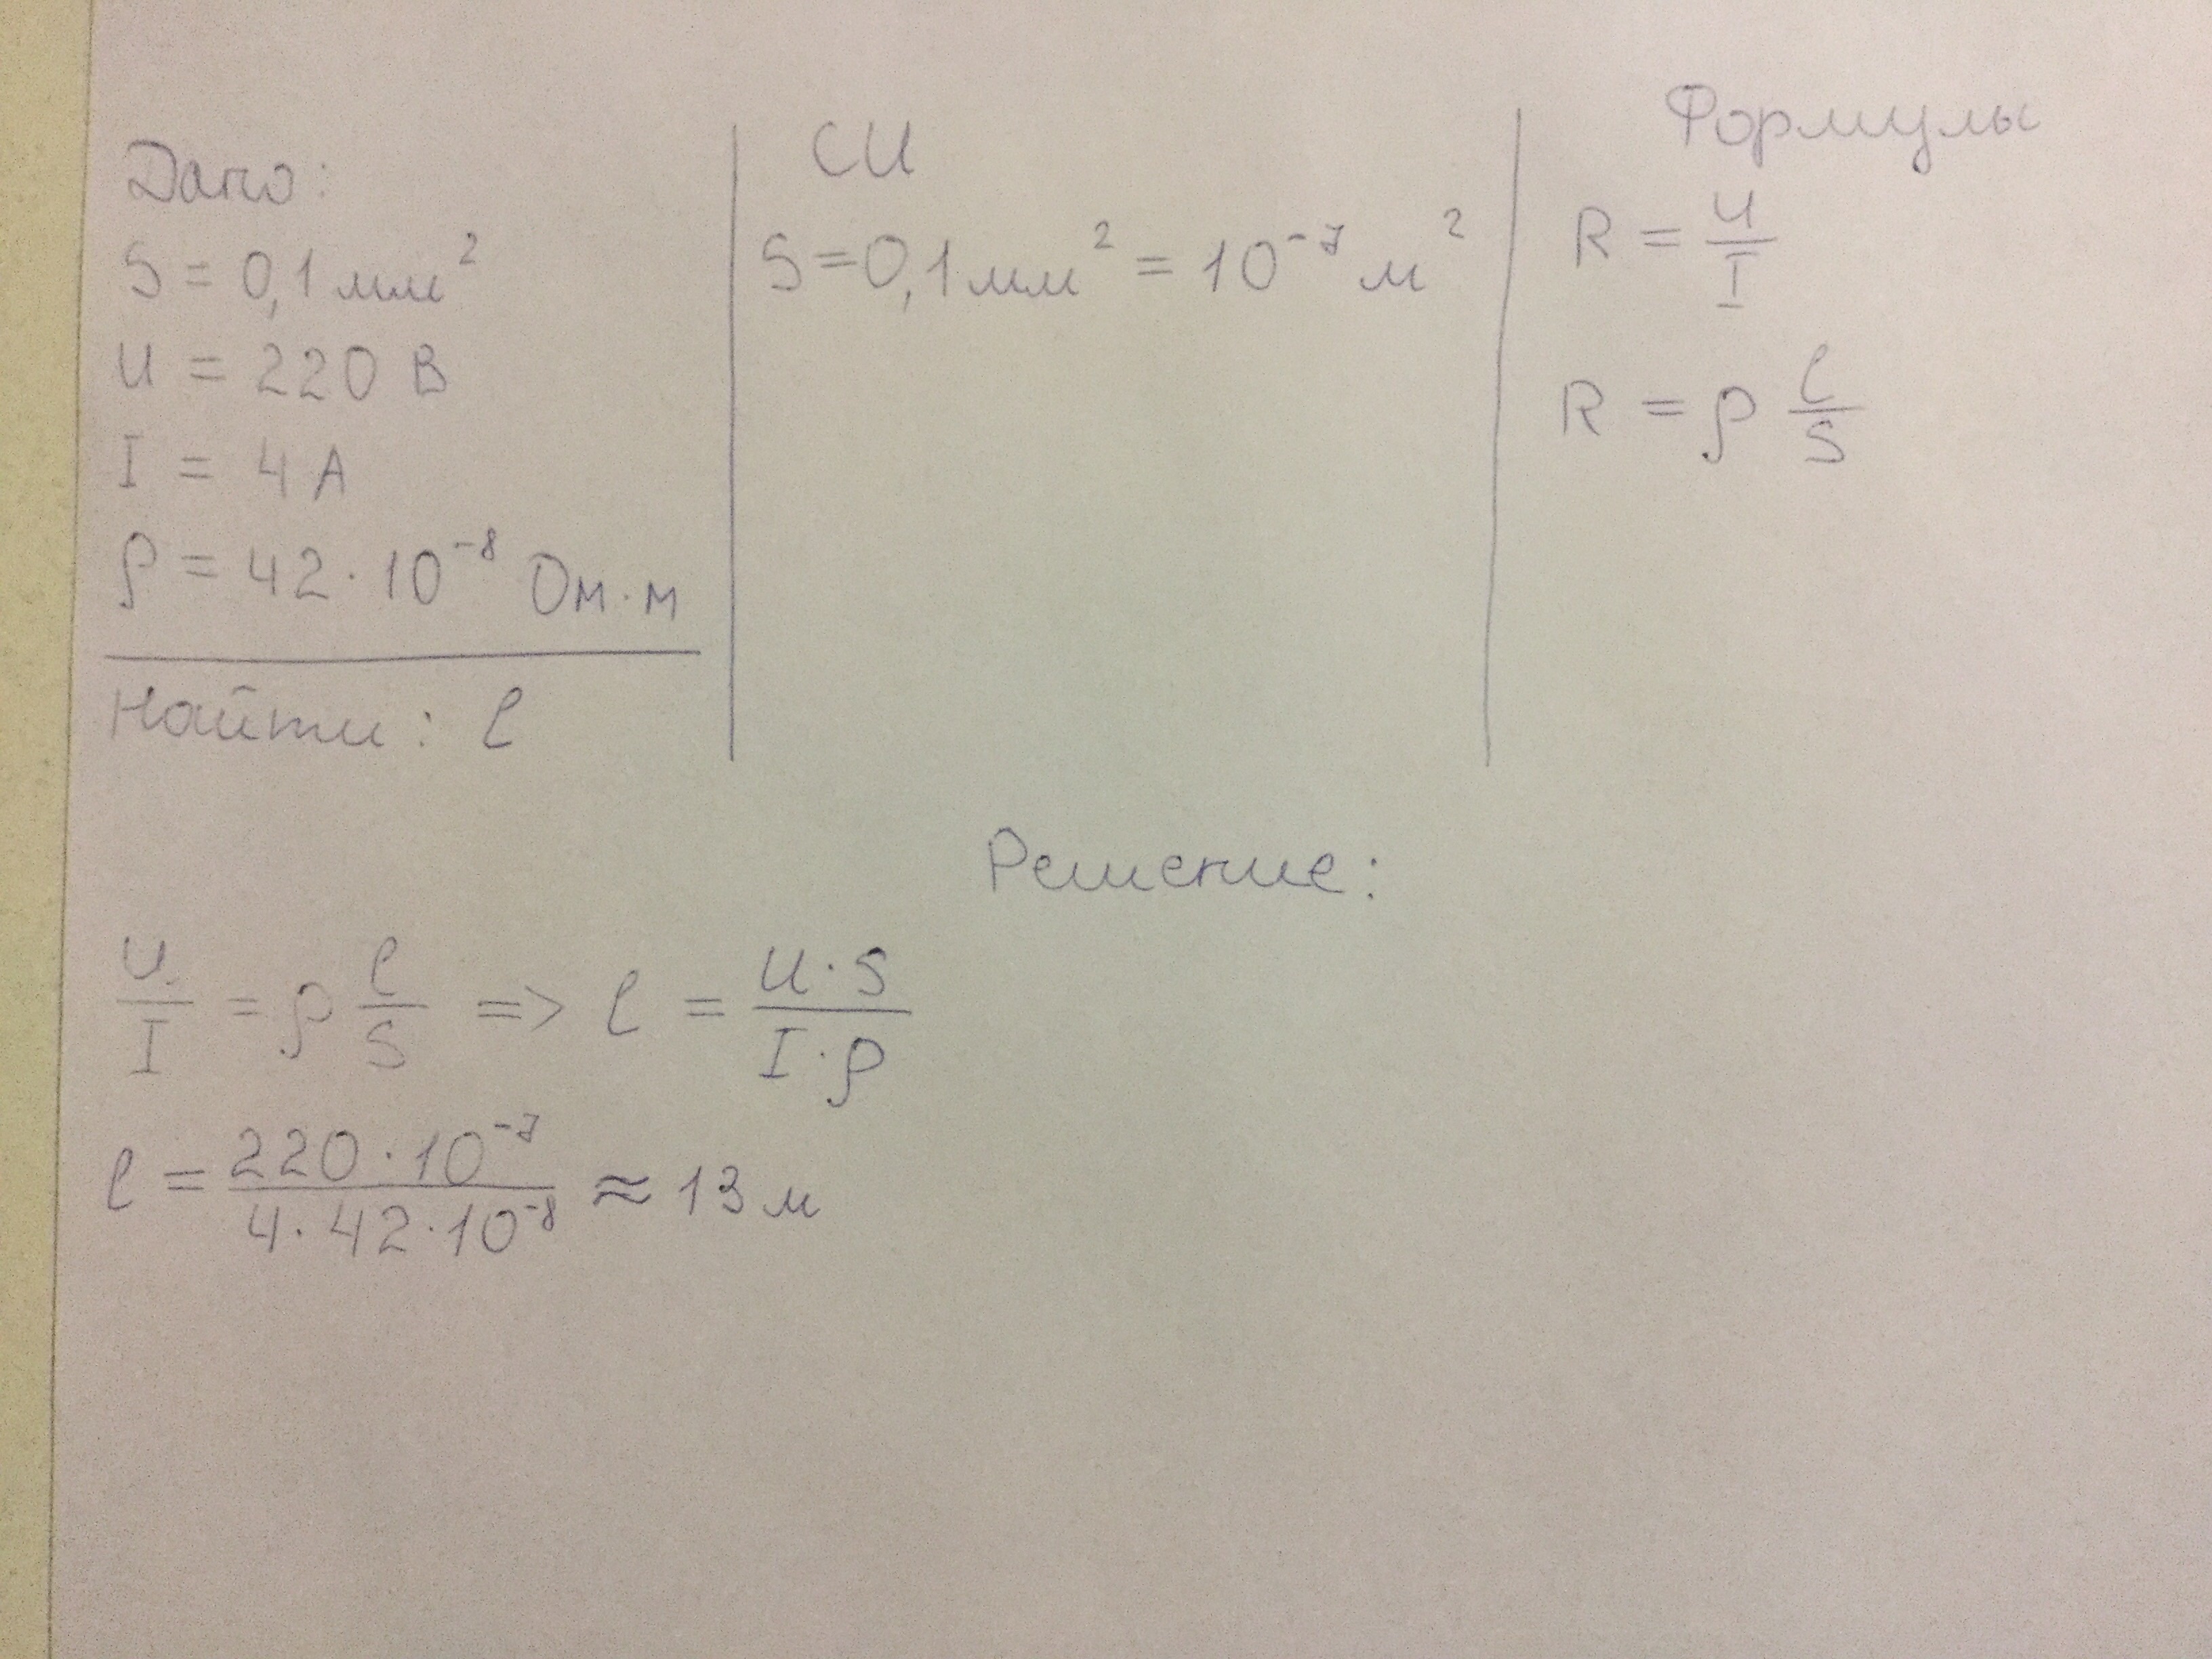 Дано:
S = 0,1 мм²
U = 220 В
I = 4 А
ρ = 42 · 10⁻⁸ Ом · м
Найти: l
СИ
S = 0,1 мм² = 10⁻⁷ м²
Формулы
R = U/I
R = ρ l/S
Решение:
U/I = ρ l/S => l = U · S / I · ρ
l = 220 · 10⁻⁷ / 4 · 42 · 10⁻⁸ ≈ 13 м